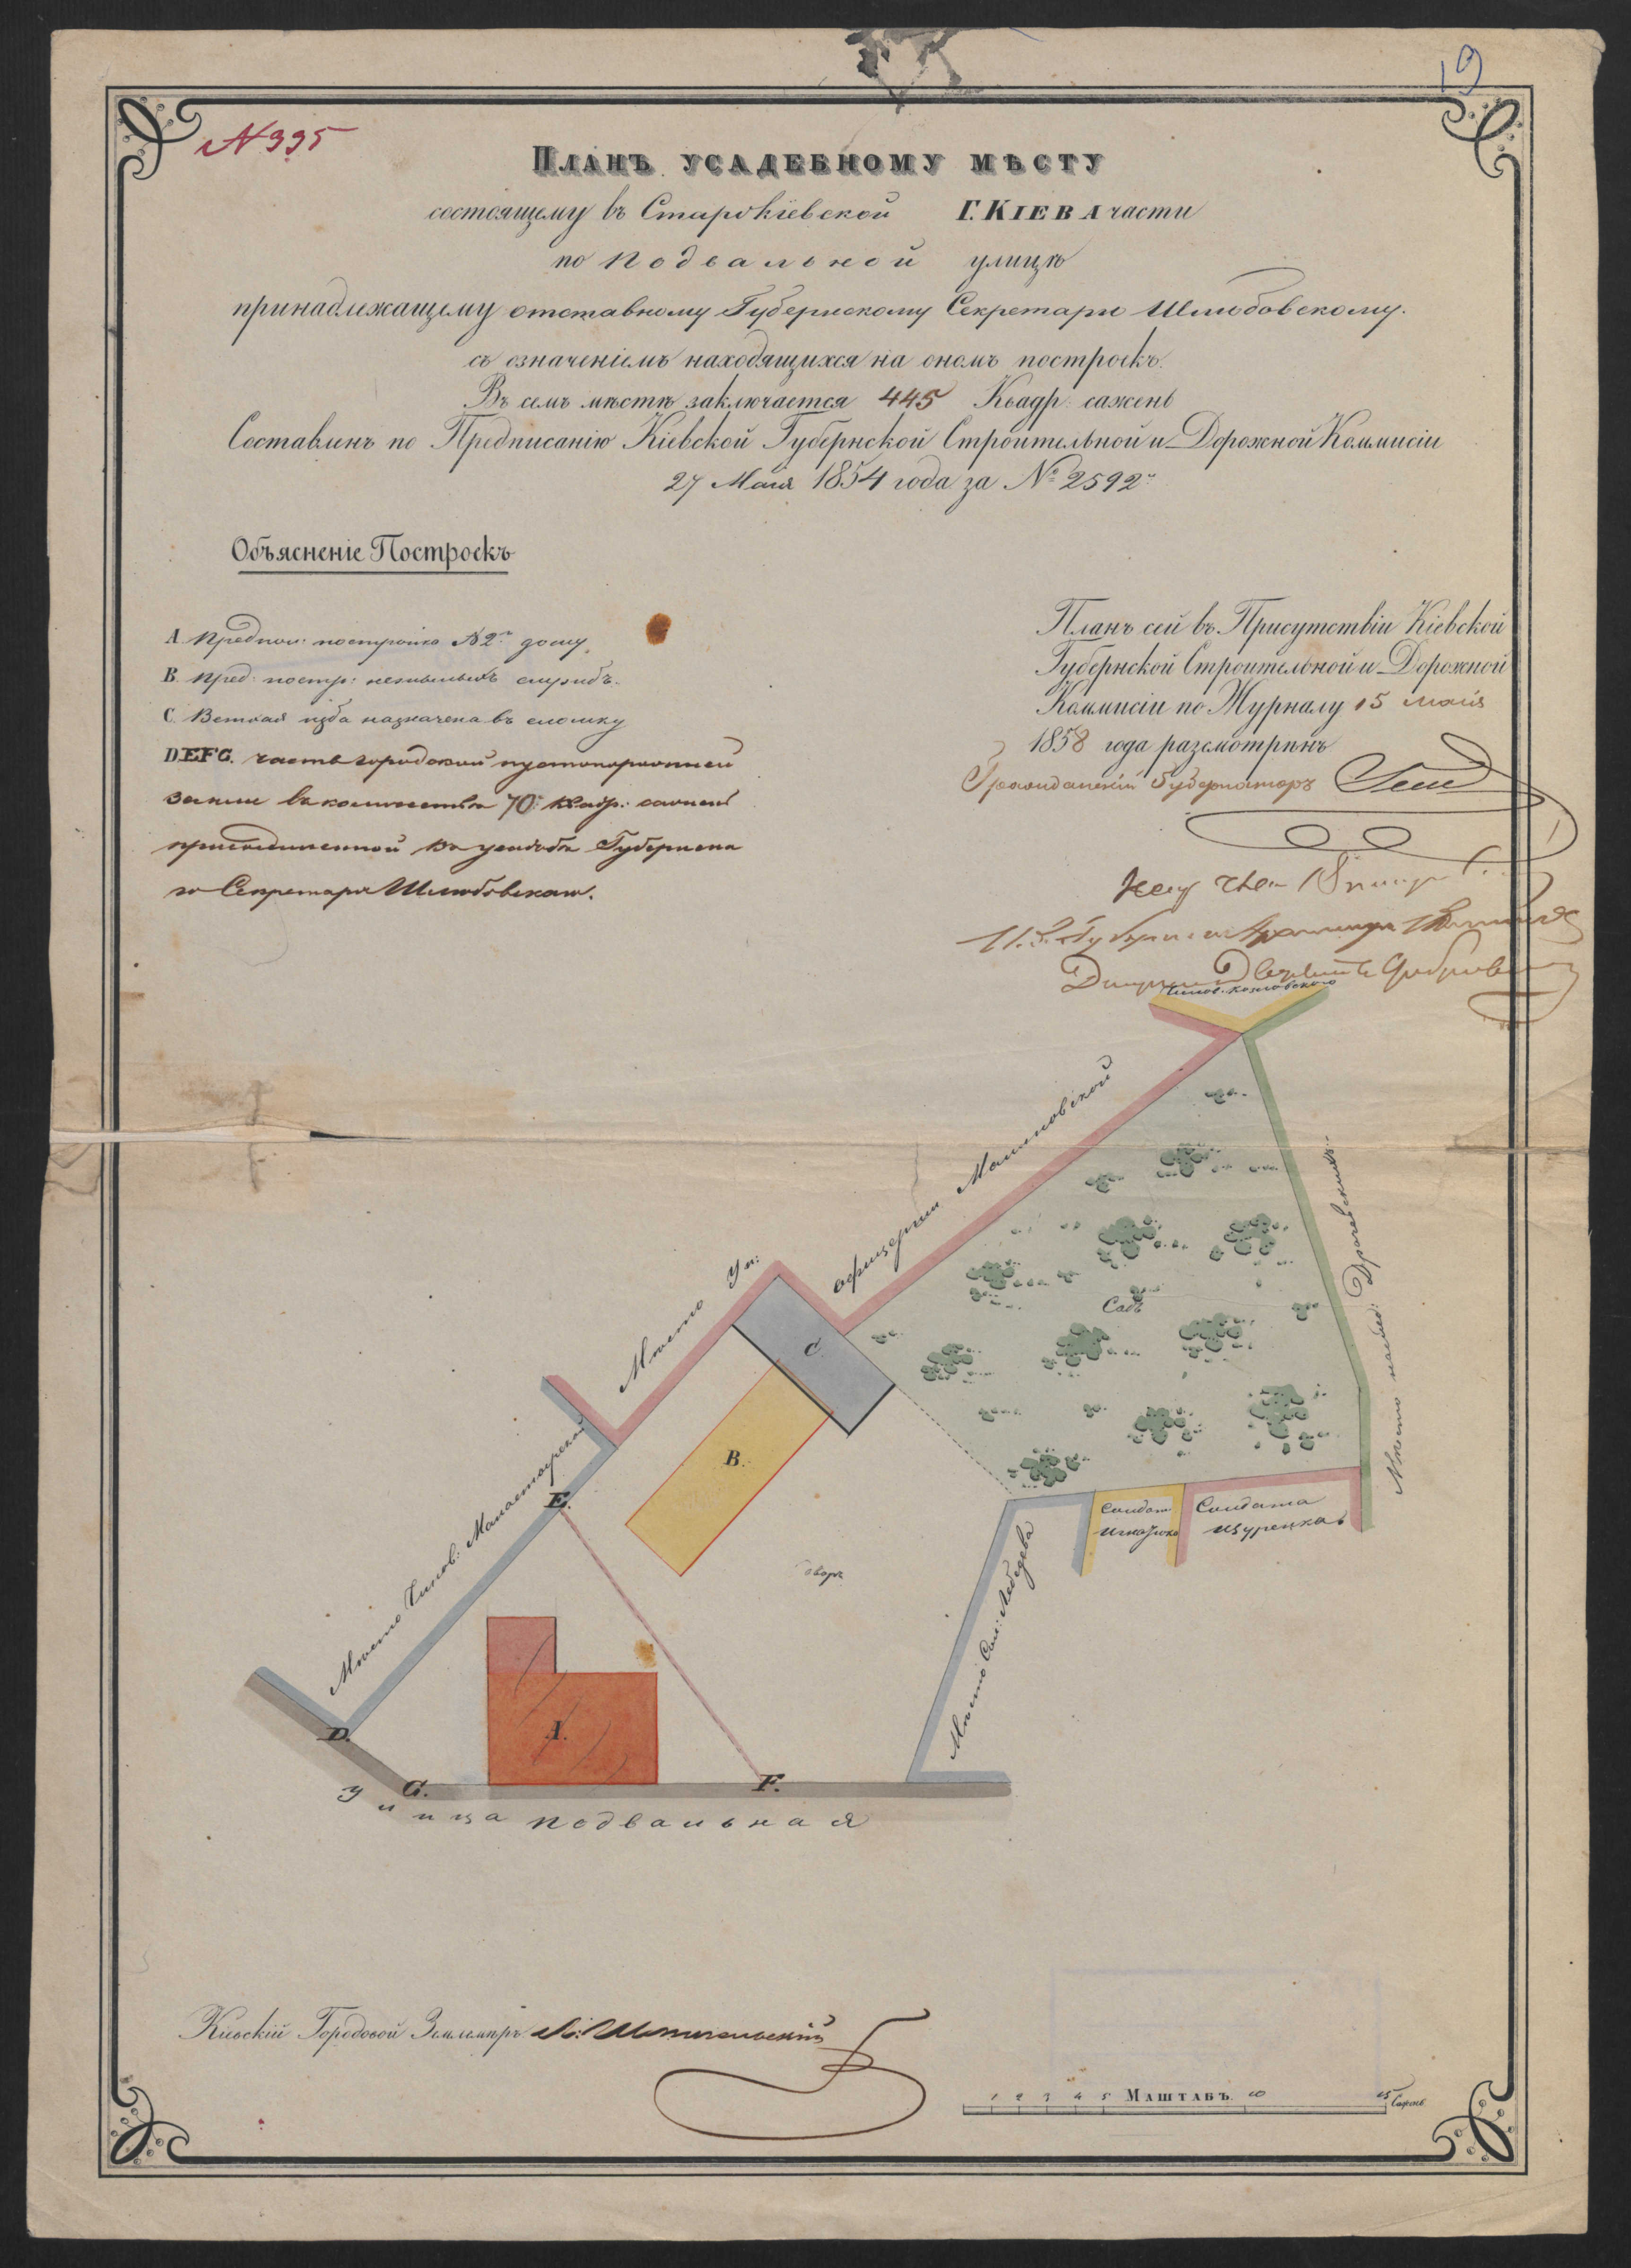 19
N 995
Планъ усадебному мѣсту
состоящему въ Старокіевской Г. Кіева части
по Подвальной улицѣ
принадлежащему отставному Губернскому Секретарю Шлюбовскому.
съ означеніемъ находящихся на ономъ построекъ.
Въ семъ мѣстѣ заключается 445 Квадр: сажень
Составленъ по Предписанію Кіевской Губернской Строительной и Дорожной Коммисіи
27 Мая 1854 года за № 2592
Объясненіе Построекъ
A. Предпол: постройка №2 дому,
B. Пред: постр: нежилыхъ службъ.
C. Ветхая изба назначена въ сломку
DEFG. часть городской пустопорожней
земли въ количествѣ 70 квадр: сажней
присоединенной къ усадьбѣ Губернска
го Секретаря Шлюбовскаго.
Планъ сей въ Присутствіи Кіевской
Губернской Строительной и Дорожной
Коммисіи по Журналу 15 мая
1858 года разсмотрѣнъ
Гражданскій Губернаторъ
Чинов. Козловского
Мѣсто Ун: офицерши Малиновской
Мѣсто наслѣд: Драчевскихъ
Садъ
C.
B.
E.
Мѣсто Чинов: Манастырской
дворъ
Солдат
Игнатюка
Солдата
Щуренкова
Мѣсто Сол: Лебедева
A.
D.
G.
F.
Улица Подвальная
Кіевскій Городовой Землемѣръ
1 2 3 4 5 Маштабъ 10 15 Сажень